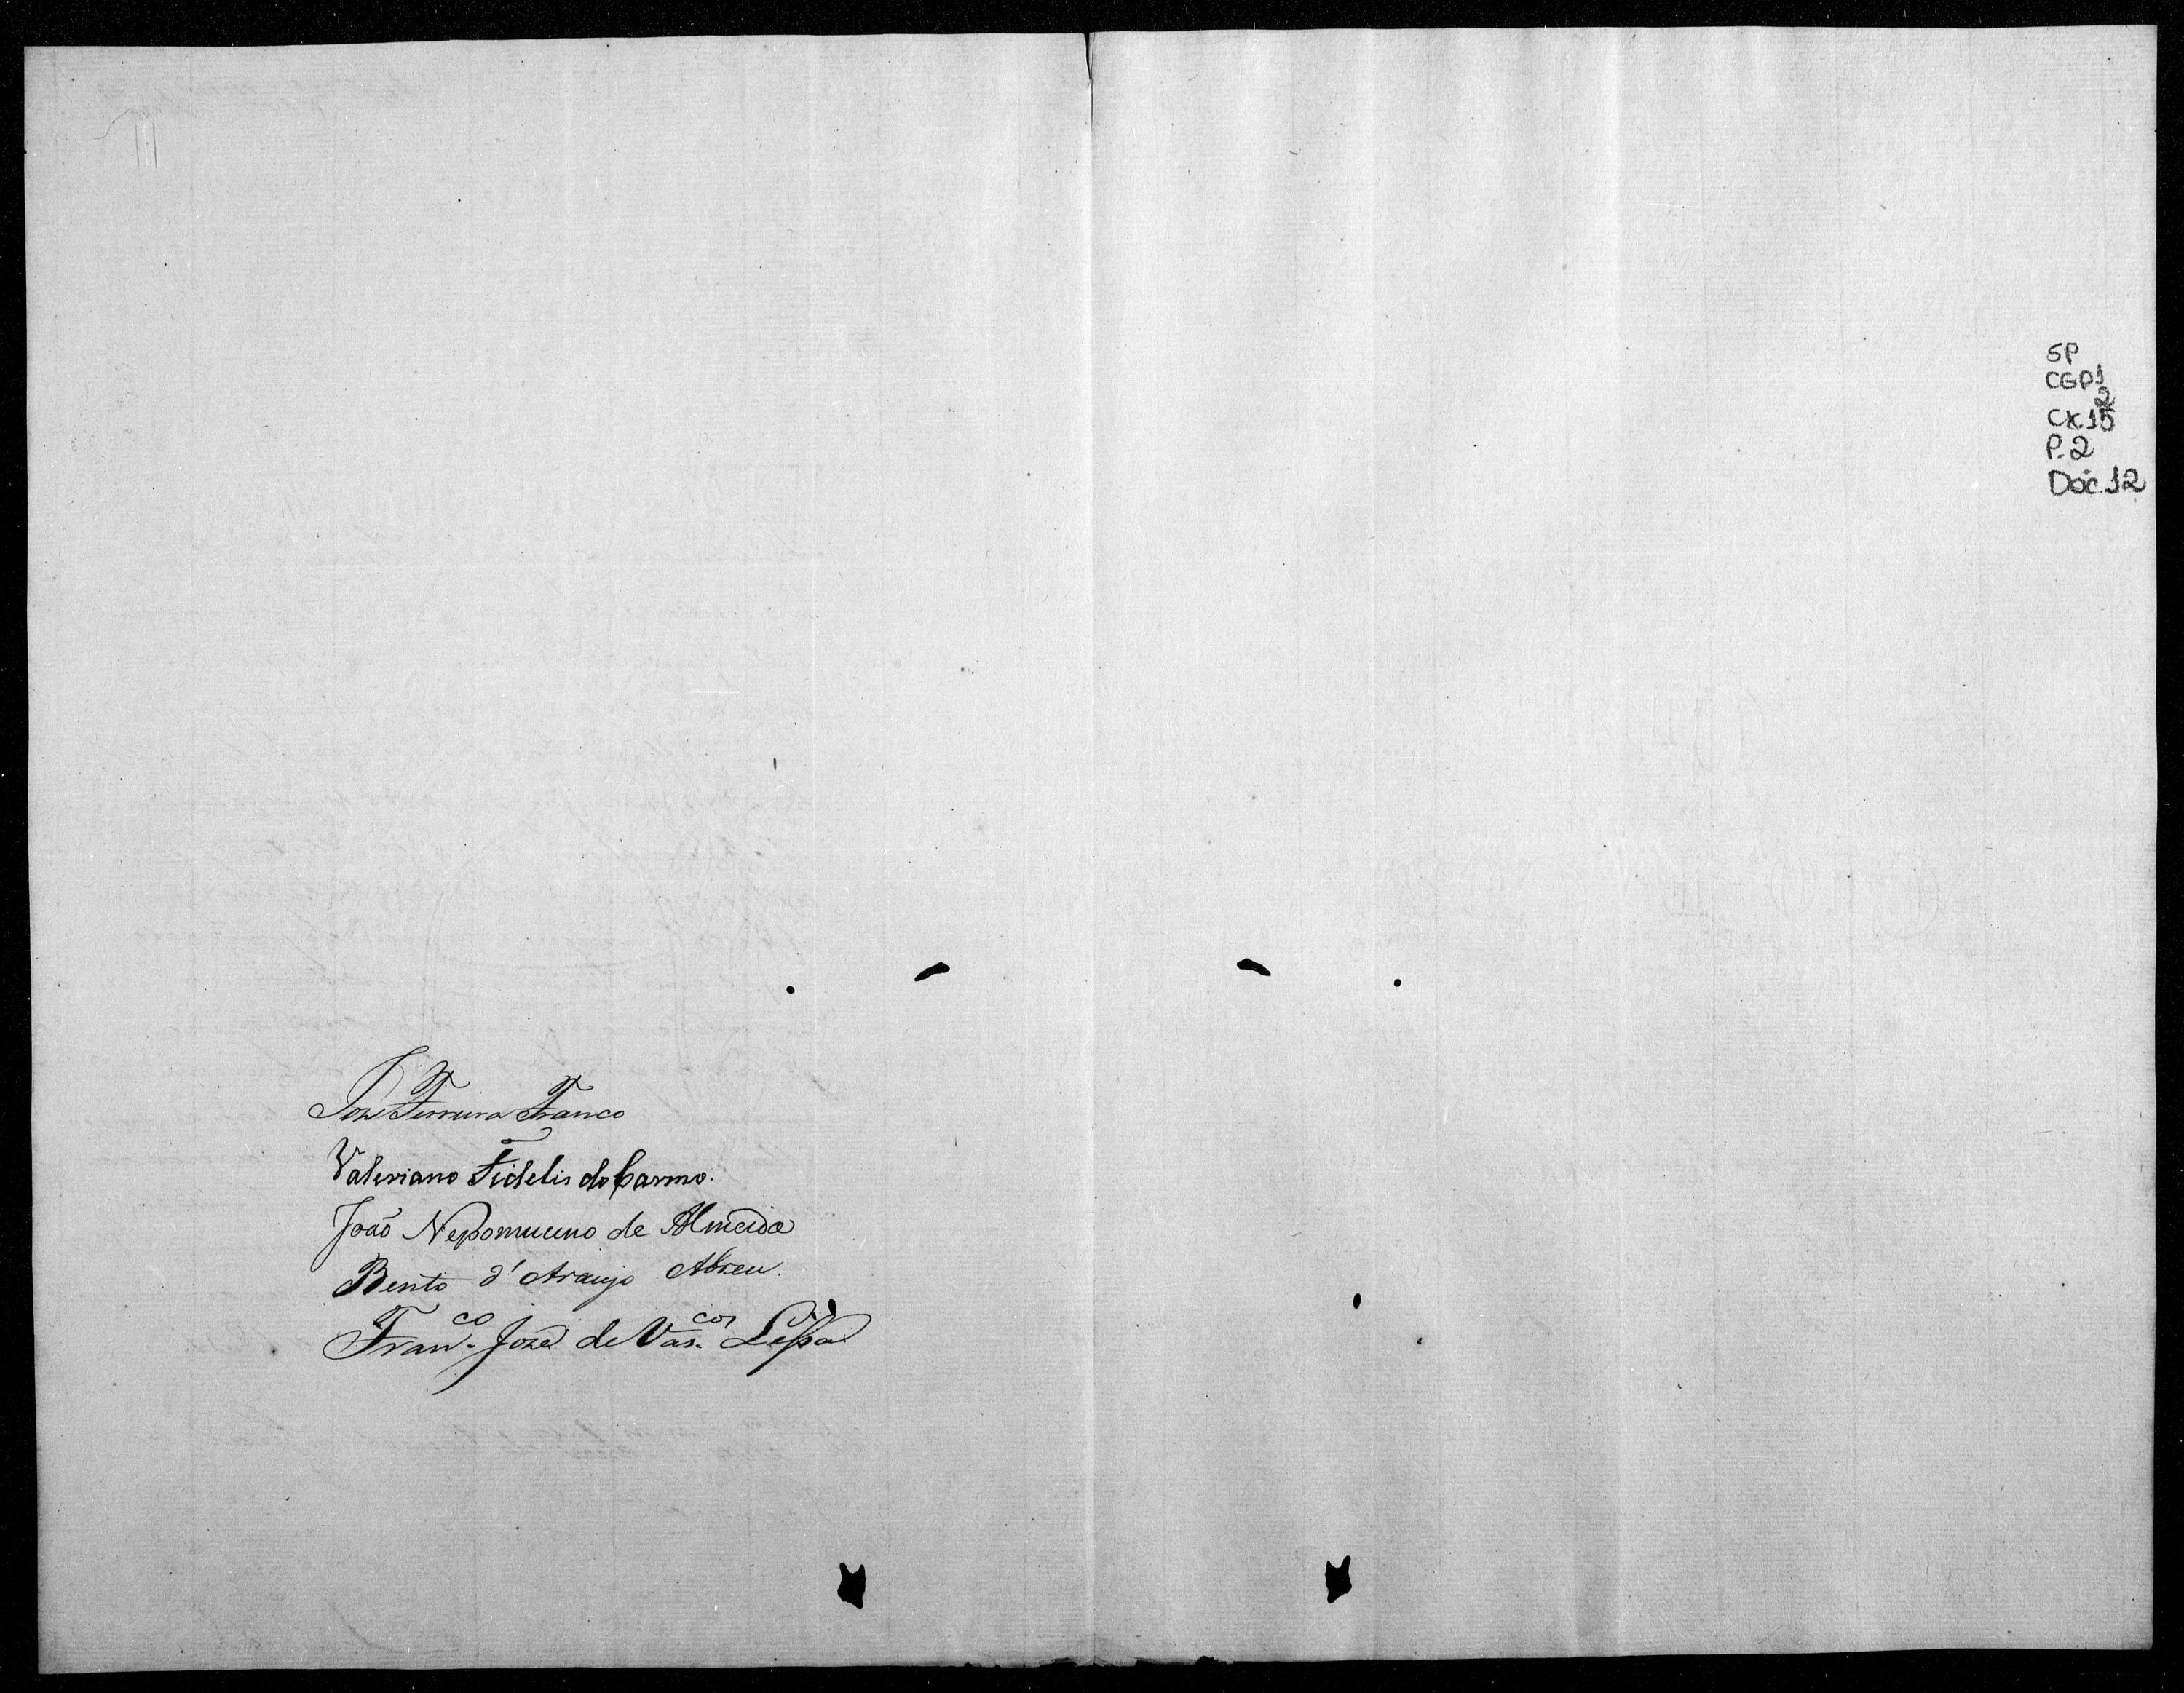 Joze Ferreira Franco
Valeriano Fidelis do Carmo.
João Nepomuceno de Almeida
Bento d'Araujo Abreu.
Fran.co Jozé de Vas.cos Lessa
SP
CGP1
2
CX15
P. 2
Doc 12